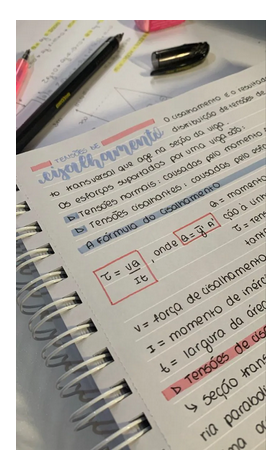 TENSÕES DE
cisalhamento
O cisalhamento é o resultado
distribuição de tensões de
to transversal que age na seção da viga.
Os esforços suportados por uma viga são:
Tensões normais: causadas pelo momento
Tensões cisalhantes: causadas pelo
A fórmula do cisalhamento
τ = VQ / It , onde Q = ȳ' A'
Q = momento
ção à
τ = ten
V = força de cisalhamento
I = momento de inérc
t = largura da área
Tensões de cis
↳ seção trans
ria parabol